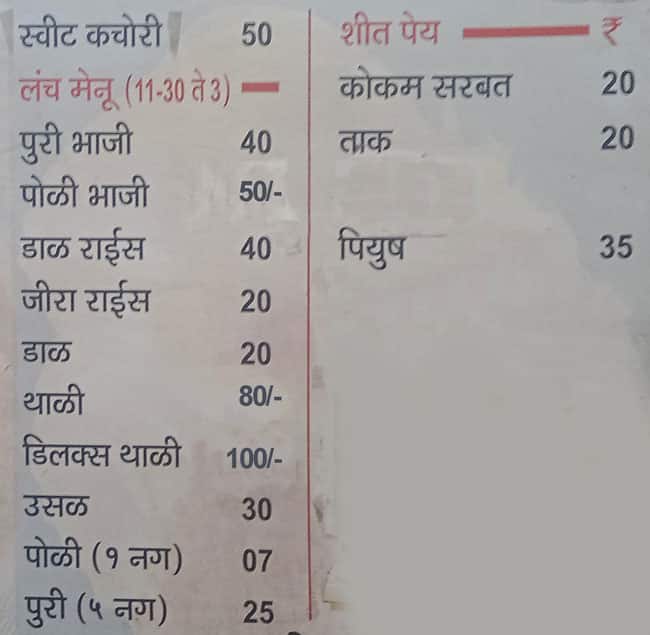 स्वीट कचोरी 50
लंच मेनू (11-30 ते 3)
पुरी भाजी 40
पोळी भाजी 50/-
डाळ राईस 40
जीरा राईस 20
डाळ 20
थाळी 80/-
डिलक्स थाळी 100/-
उसळ 30
पोळी (१ नग) 07
पुरी (५ नग) 25
शीत पेय ₹
कोकम सरबत 20
ताक 20
पियुष 35